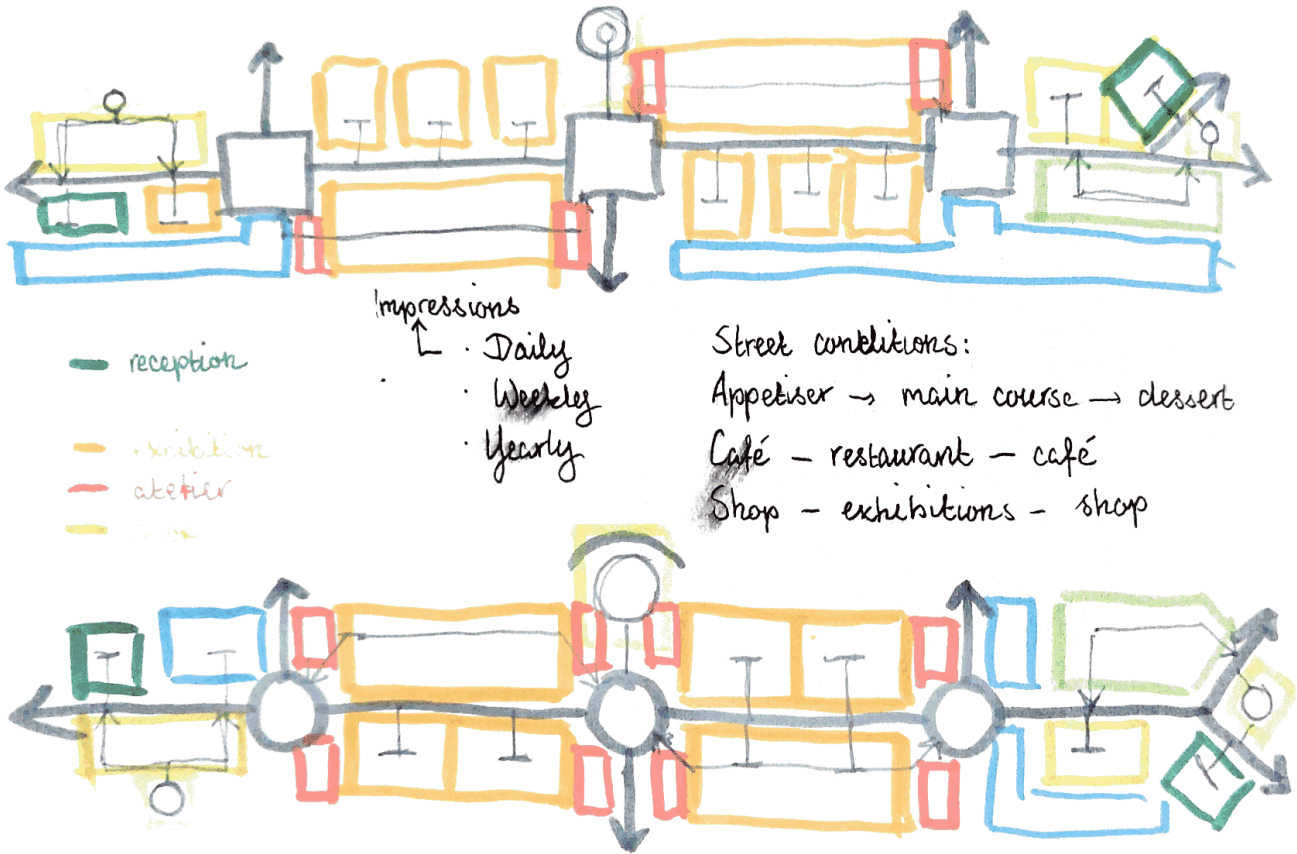 Impressions
· Daily
· Weekly
· Yearly
Street conditions:
Appetiser → main course → dessert
Café – restaurant – café
Shop – exhibitions – shop
reception
exhibition
atelier